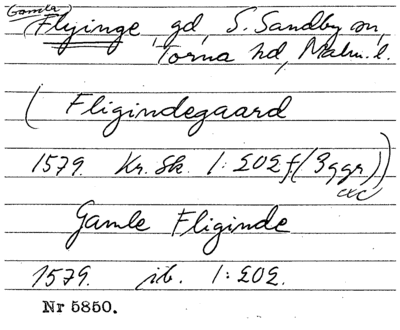 (Gamla)
(Flyinge, gd, S. Sandby sn,
Torna hd, Malm. l.
(Fligindegaard
1579. Kr. Sk. 1:202 f. (3 ggr))
Gamle Fliginde
1579. ib. 1:202.
Nr 5850.